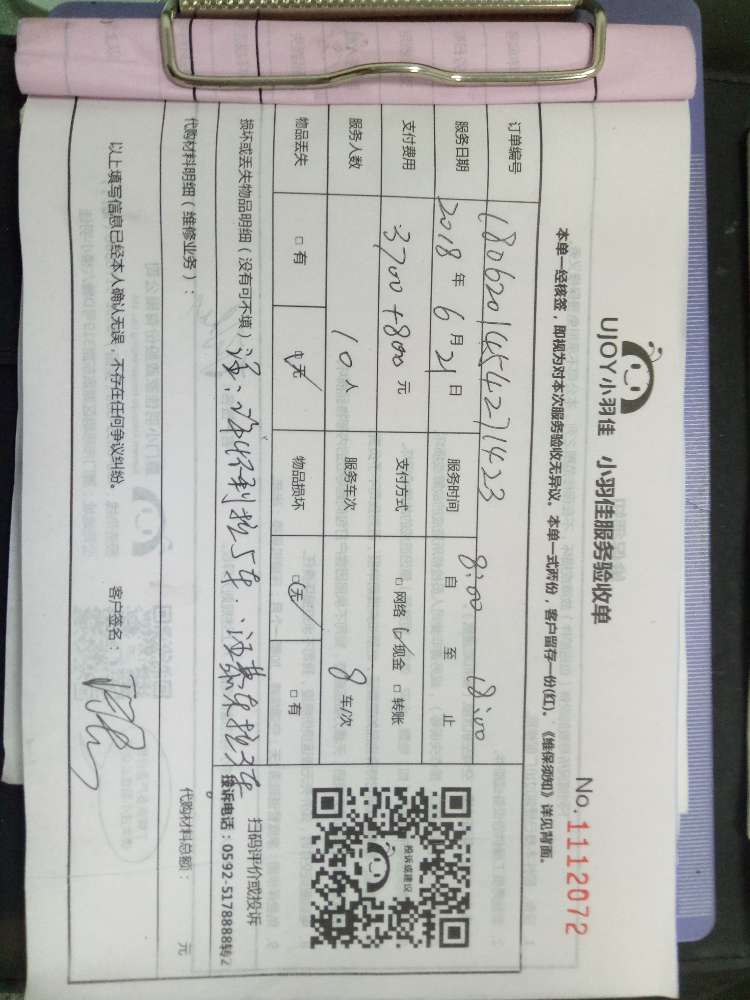 UJOY小羽佳 小羽佳服务验收单
No.1112072
本单一经核签，即视为对本次服务验收无异议。本单一式两份，客户留存一份(红)。《维保须知》详见背面。
订单编号 180620145427 1423
服务日期 2018 年 6 月 21 日 服务时间 自 8:00 至 18:00 止
支付费用 3700+800 元 支付方式 □ 网络 ☑现金 □ 转账
服务人数 10 人 服务车次 8 车/次
物品丢失 □ 有 ☑无 物品损坏 ☑无 □ 有
投诉或建议
扫码评价或投诉
投诉电话：0592-5178888转2
损坏或丢失物品明细（没有可不填）
代购材料明细（维修业务）： 代购材料总额： 元
以上填写信息已经本人确认无误，不存在任何争议纠纷。 客户签名：